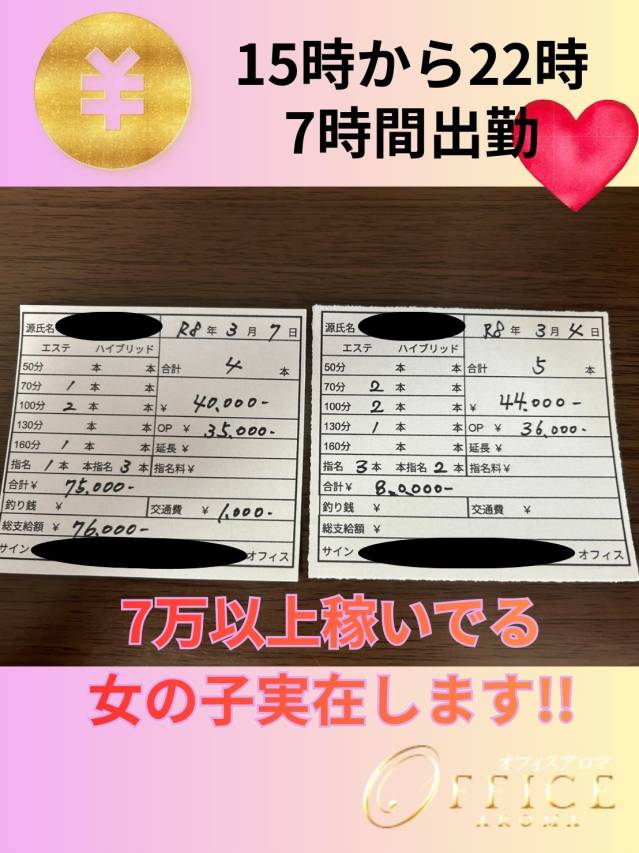 ¥
15時から22時
7時間出勤
源氏名 R8年 3月 7日
エステ ハイブリッド
50分 本 本 合計 4 本
70分 1本 本
100分 2本 本 ¥ 40,000-
130分 本 本 OP ¥ 35,000-
160分 1本 本 延長¥
指名 1本 本指名 3本 指名料¥
合計¥ 75,000-
釣り銭 ¥ 交通費 ¥ 1,000-
総支給額 ¥ 76,000-
サイン オフィス
源氏名 R8年 3月 4日
エステ ハイブリッド
50分 本 本 合計 5 本
70分 2本 本
100分 2本 本 ¥ 44,000-
130分 1本 本 OP ¥ 36,000-
160分 本 本 延長¥
指名 3本 本指名 2本 指名料¥
合計¥ 80,000-
釣り銭 ¥ 交通費 ¥
総支給額 ¥
サイン オフィス
7万以上稼いでる
女の子実在します!!
オフィスアロマ
OFFICE
AROMA